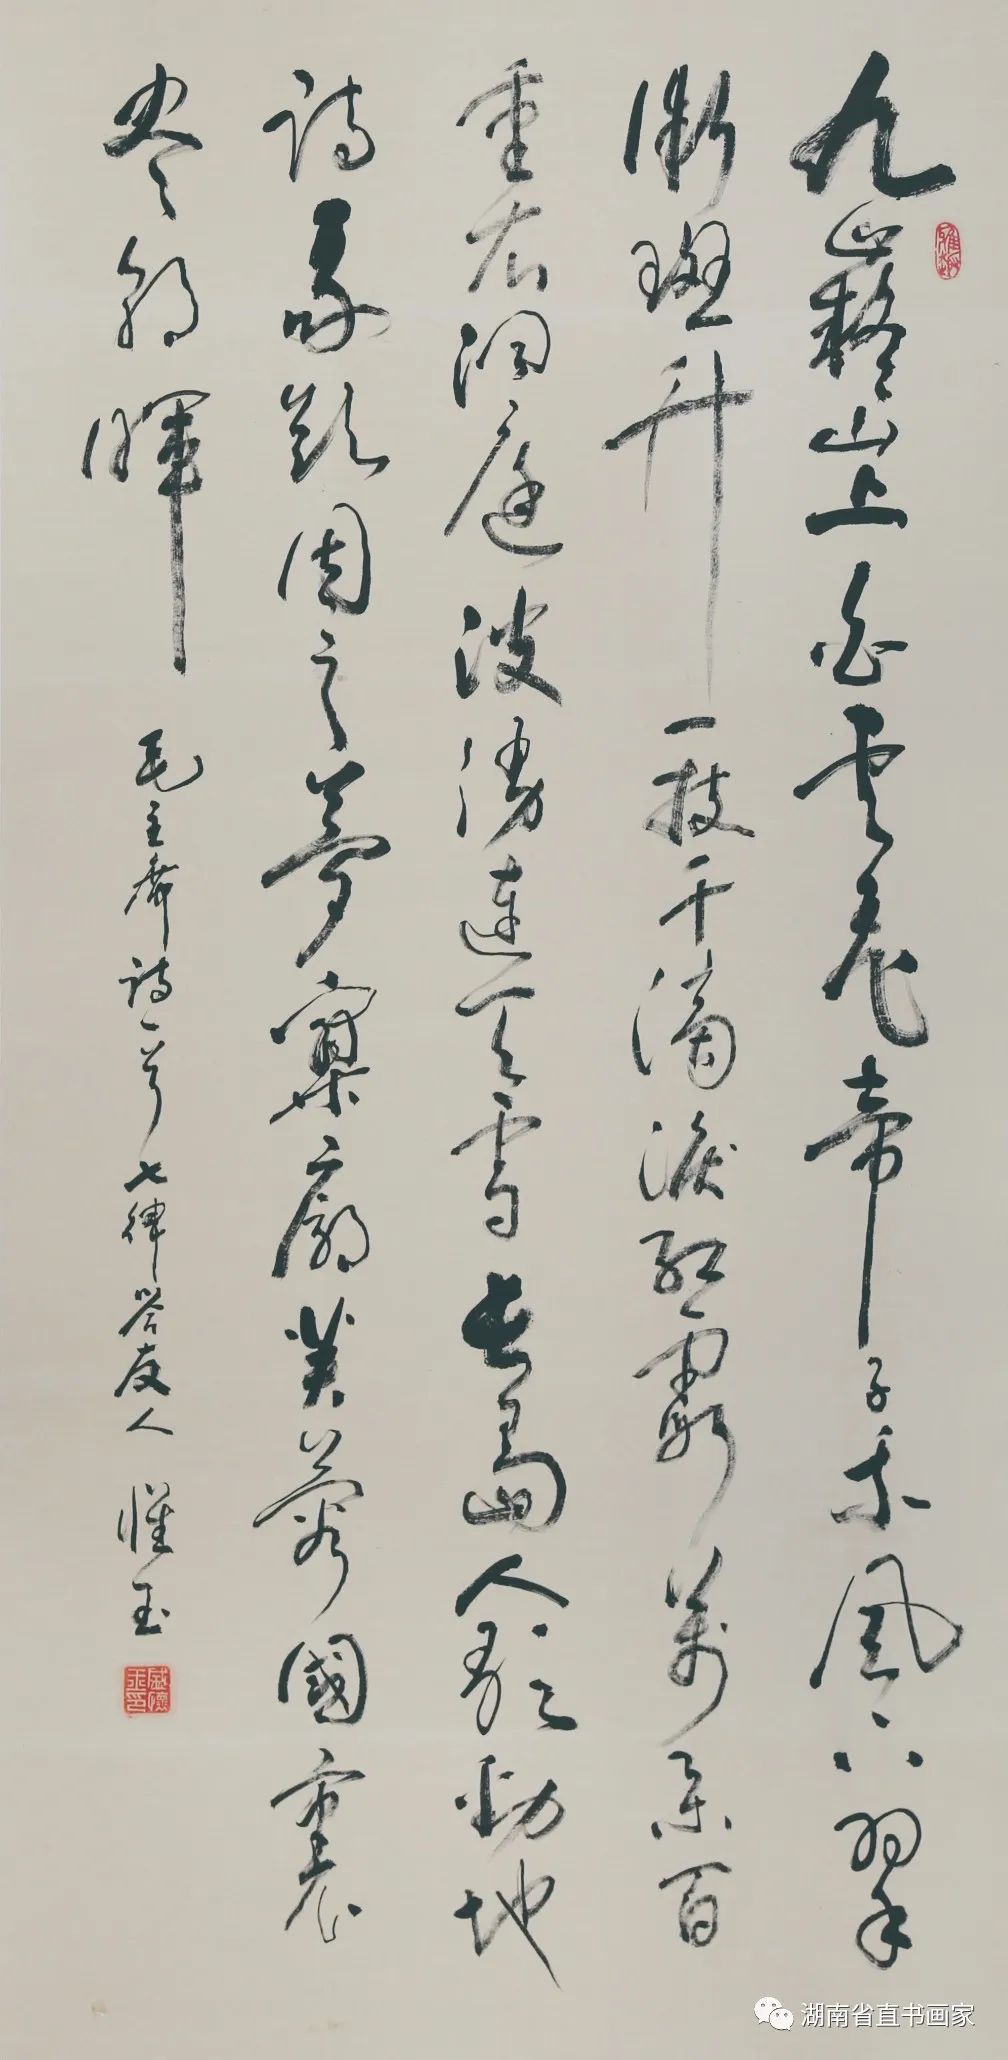 九嶷山上白云飛帝子乘风下翠
微斑竹一枝千滴淚红霞萬朵百
重衣洞庭波湧連天雪長島人歌動地
詩我欲因之夢寥廓芙蓉國裏
尽朝暉
毛主席詩一首七律答友人 懷玉
湖南省直书画家